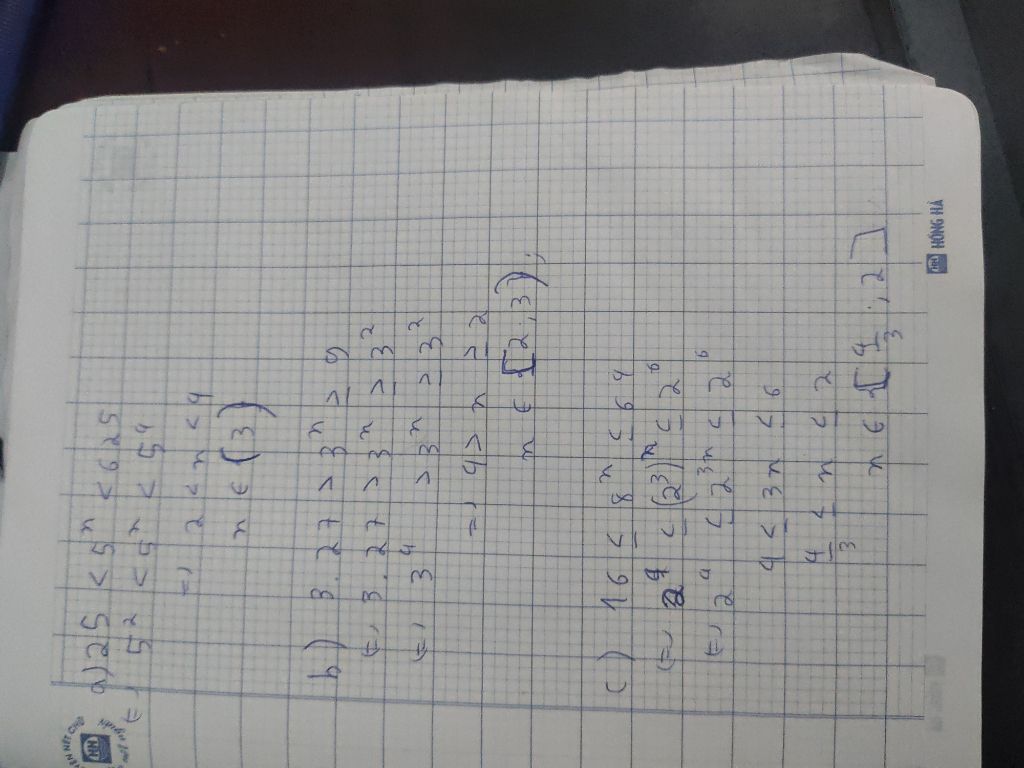 a) 25 < 5ⁿ < 625
(=) 5² < 5ⁿ < 5⁴
=) 2 < n < 4
n ∈ (3)
b) 3.27 > 3ⁿ ≥ 9
(=) 3.27 > 3ⁿ ≥ 3²
(=) 3⁴ > 3ⁿ ≥ 3²
=) 4 > n ≥ 2
n ∈ [2;3);
c) 16 ≤ 8ⁿ ≤ 64
(=) 2⁴ ≤ (2³)ⁿ ≤ 2⁶
(=) 2⁴ ≤ 2³ⁿ ≤ 2⁶
4 ≤ 3n ≤ 6
4/3 ≤ n ≤ 2
n ∈ [4/3;2]
HỒNG HÀ